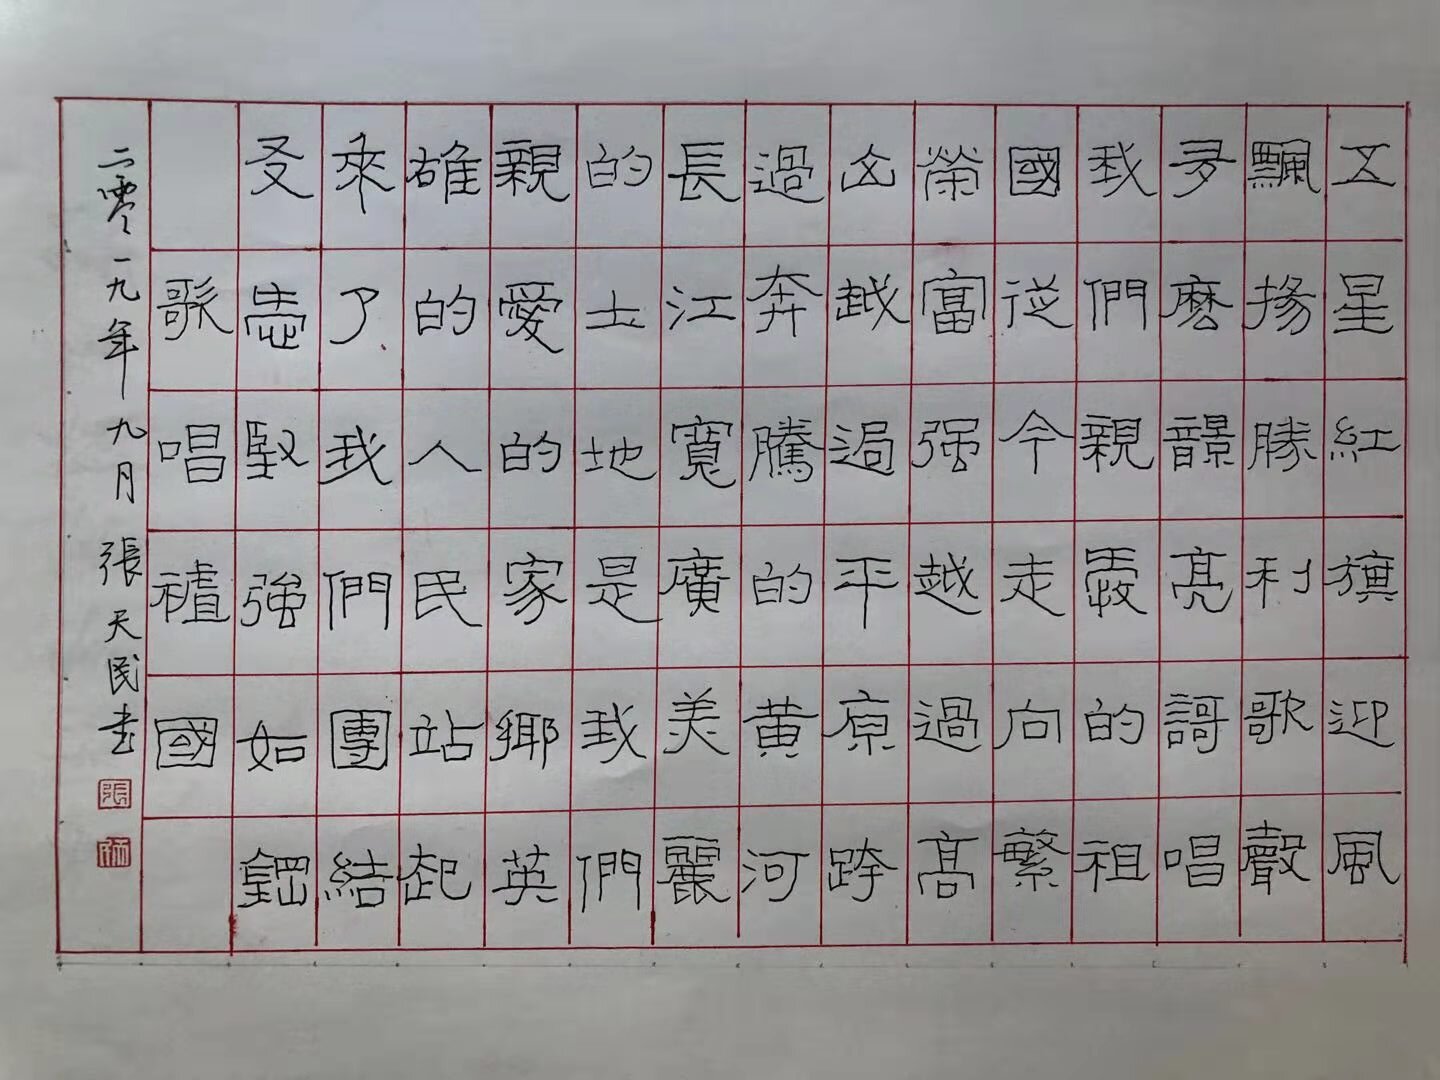 五星紅旗迎風
飄揚勝利歌聲
多麽響亮謌唱
我們親愛的祖
國從今走向繁
榮富强越過高
山越過平原跨
過奔騰的黄河
長江寬廣美麗
的土地是我們
親愛的家鄉英
雄的人民站起
來了我們團結
友愛堅強如鋼
歌唱祖國
二零一九年九月 張天民书
張